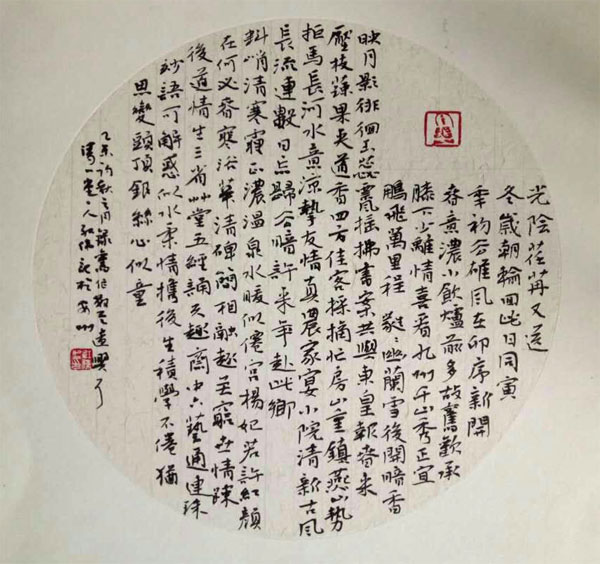 光陰荏苒又送
冬歲朝輪回此日同寅
季初谷雄風在卯序新開
春意濃小飲爐前多故舊歡承
膝下少離情喜看九州千山秀正宜
鵬飛萬里程幽蘭雪後開暗香
映月影徘徊玉蕊熏搖拂書案共與東皇報春來
壓枝果夾道香四方佳客採摘忙房山重鎮燕山勢
拒馬長河水意涼摯友情真農家宴小院清新古風
長流連數日忘歸谷暗許來年赴此鄉
料峭清寒霧正濃溫泉水暖似僊宮楊妃若許紅顏
在何必春寒浴華清碑相融趣無窮世情疎
後道情生三省艸堂五經誦趣齋中六藝通連珠
妙語可解惑似水柔情攜後生積學不倦猶
思變頭頂銀絲心似童
乙未初秋之月錄舊作數首遣興于